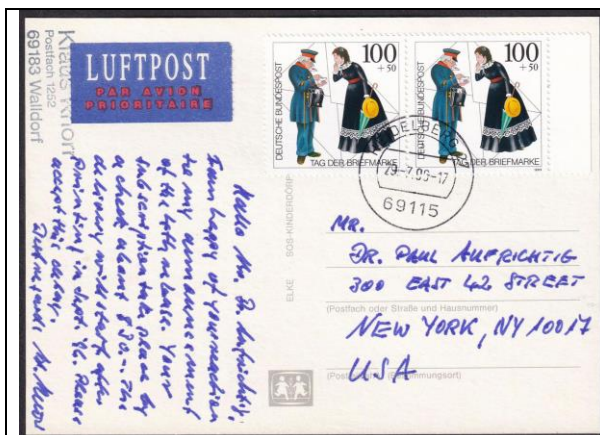 Klaus Knorr
Postfach 1252
69183 Walldorf
LUFTPOST
PAR AVION
PRIORITAIRE
DEUTSCHE BUNDESPOST
100
+50
TAG DER BRIEFMARKE
DEUTSCHE BUNDESPOST
100
+50
TAG DER BRIEFMARKE
HEIDELBERG
29.-7.96-17
69115
Hello Mr. Dr. Aufrichtig,
I am happy of your reaction
to my announcement
of the beth release. Your
subscription take place by
a check about $ 30.-. The
delivery will start after
printing in Sept. 96. Please
accept this delay.
ELKE
SOS-KINDERDORF
MR.
DR. PAUL AUFRICHTIG
300 EAST 42 STREET
(Postfach oder Straße und Hausnummer)
NEW YORK, NY 10017
USA